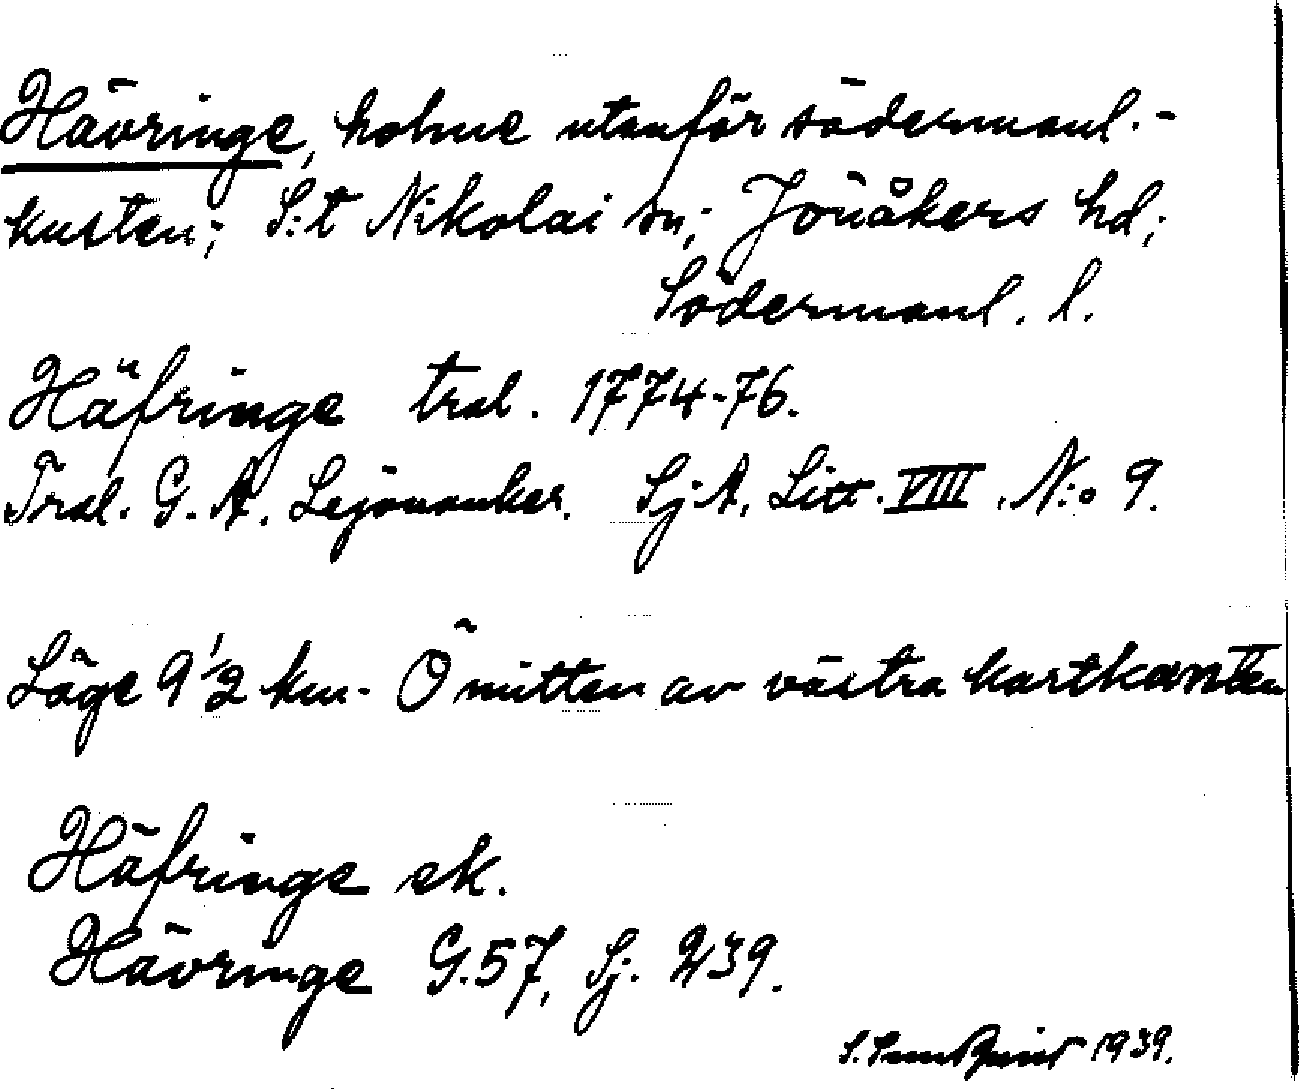 Hävringe, holme utanför södermanl.-
kusten; S:t Nikolai sn; Jönåkers hd;
Södermanl. l.
Häfringe tral. 1774-76.
Tral. G. A. Lejonanker. Sj A. Litt. VIII. N:o 9.
Läge 9 1/2 km. Ö mitten av västra kartkanten
Häfringe ek.
Hävringe G. 57, Sj. 239.
S. 1939.